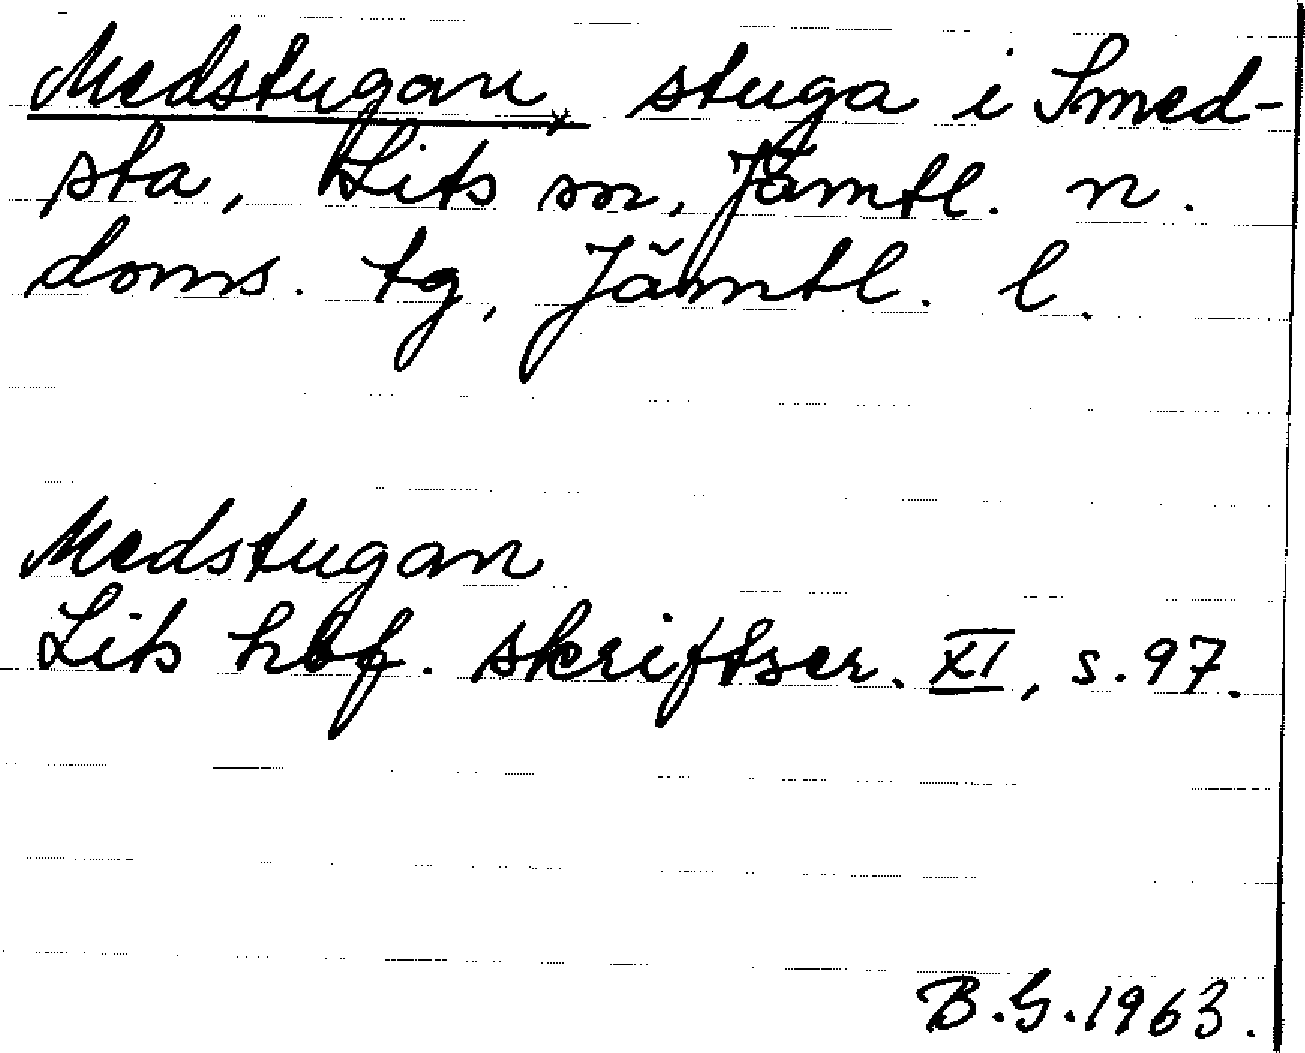 Medstugan, stuga i Smed-
sta, Lits sn, Jämtl. n.
doms. tg, Jämtl. l.
Medstugan
Lits hbf. skriftser. XI, s. 97.
B.G. 1963.